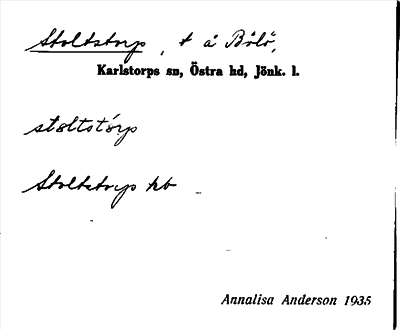 Stoltstorp, t å Bölö,
Karlstorps sn, Östra hd, Jönk. l.
stoltstórp
Stoltstorp kb
Annalisa Anderson 1935